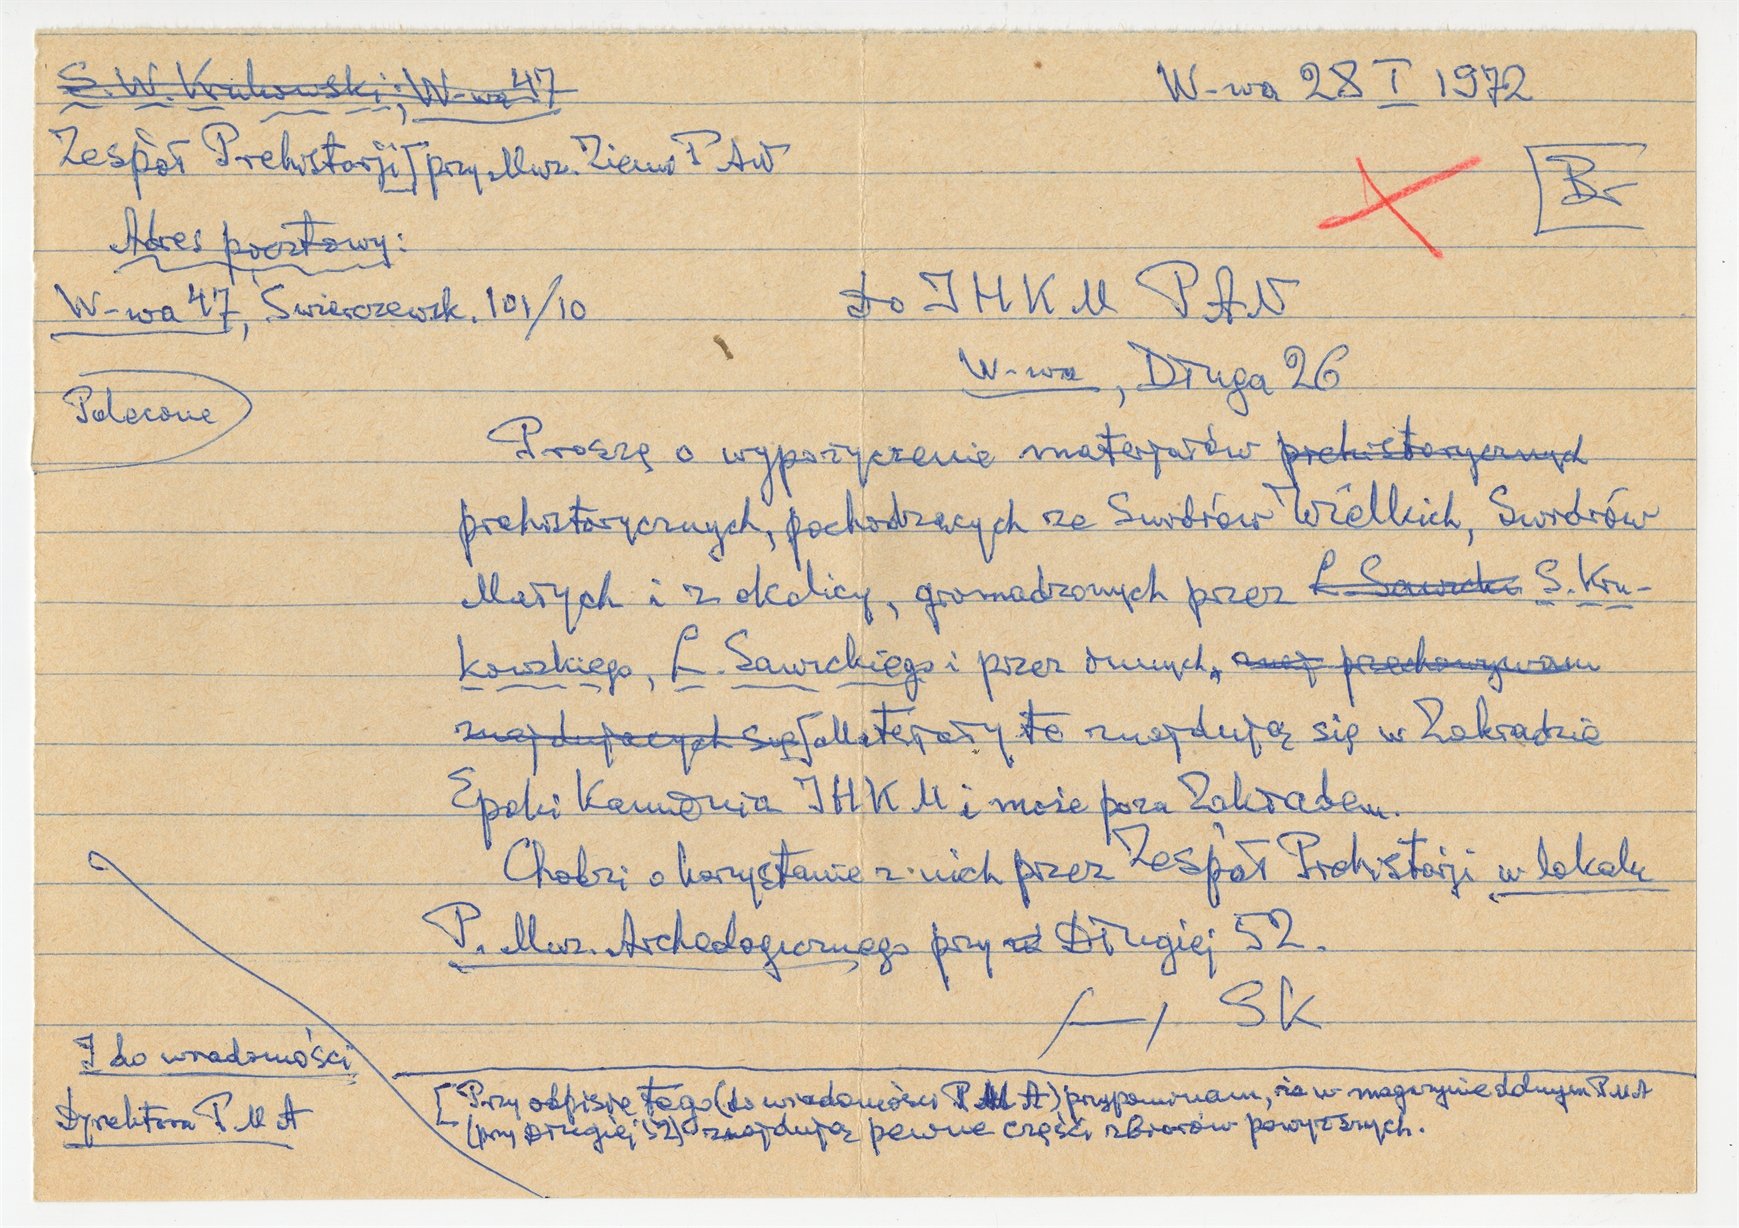 S. W. Krukowski, W-wa 47
W-wa 28 I 1972
Zespół Prehistorji [przy Muz. Ziemi PAN
Br
Adres pocztowy:
W-wa 47, Świerczewsk. 101/10
do IHKM PAN
W-wa, Długa 26
Polecone
Proszę o wypożyczenie materjałów prehistorycznych
prehistorycznych, pochodzących ze Świdrów Wielkich, Świdrów
Małych i z okolicy, gromadzonych przez L Sawicki S. Kru-
kowskiego, L. Sawickiego i przez innych, przechowywam
znajdujących się [Materjały te znajdują się w Zakładzie
Epoki Kamienia IHKM i może poza Zakładem.
Chodzi o korzystanie z nich przez Zespół Prehistorji w lokalu
P. Muz. Archeologicznego przy Długiej 52.
SK
I do wiadomości
Dyrektora PMA
[Przy odpisie tego (do wiadomości PMA) przypominam, że w magazynie dolnym PMA
(przy Długiej 52) znajdują pewne części zbiorów powyższych.